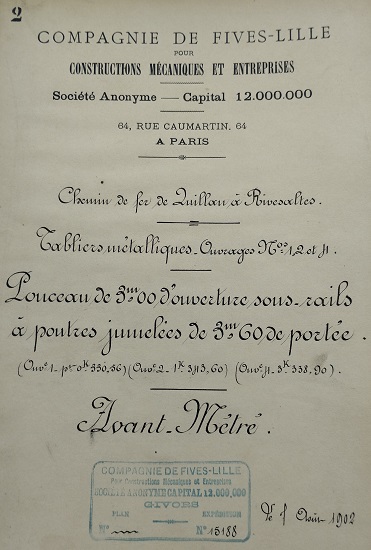 2
COMPAGNIE DE FIVES-LILLE
POUR
CONSTRUCTIONS MÉCANIQUES ET ENTREPRISES
Société Anonyme — Capital 12.000.000
64, RUE CAUMARTIN, 64
A PARIS
Chemin de fer de Quillan à Rivesaltes.
Tabliers métalliques. Ouvrages Nos 1, 2 et 4.
Ponceau de 3m00 d'ouverture, sous-rails
à poutres jumelées de 3m60 de portée.
(Ouvge 1 - pt 0K 330,36) (Ouvge 2 - 1K 343,60) (Ouvge 4 - 3K 338,90).
Avant-Métré.
COMPAGNIE DE FIVES-LILLE
Pour Constructions Mécaniques et Entreprises
SOCIÉTÉ ANONYME CAPITAL 12,000,000
GIVORS
PLAN EXPÉDITION
N° N° 15188
1902